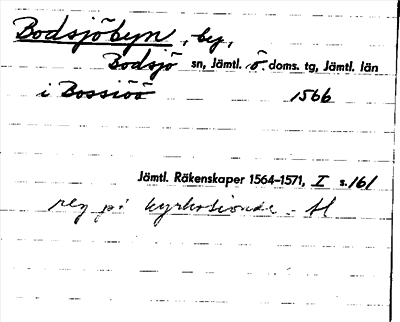 Bodsjöbyn, by,
Bodsjö sn, Jämtl. ö. doms. tg, Jämtl. län
i Bossiöö 1566
Jämtl. Räkenskaper 1564-1571, I s. 161
reg på